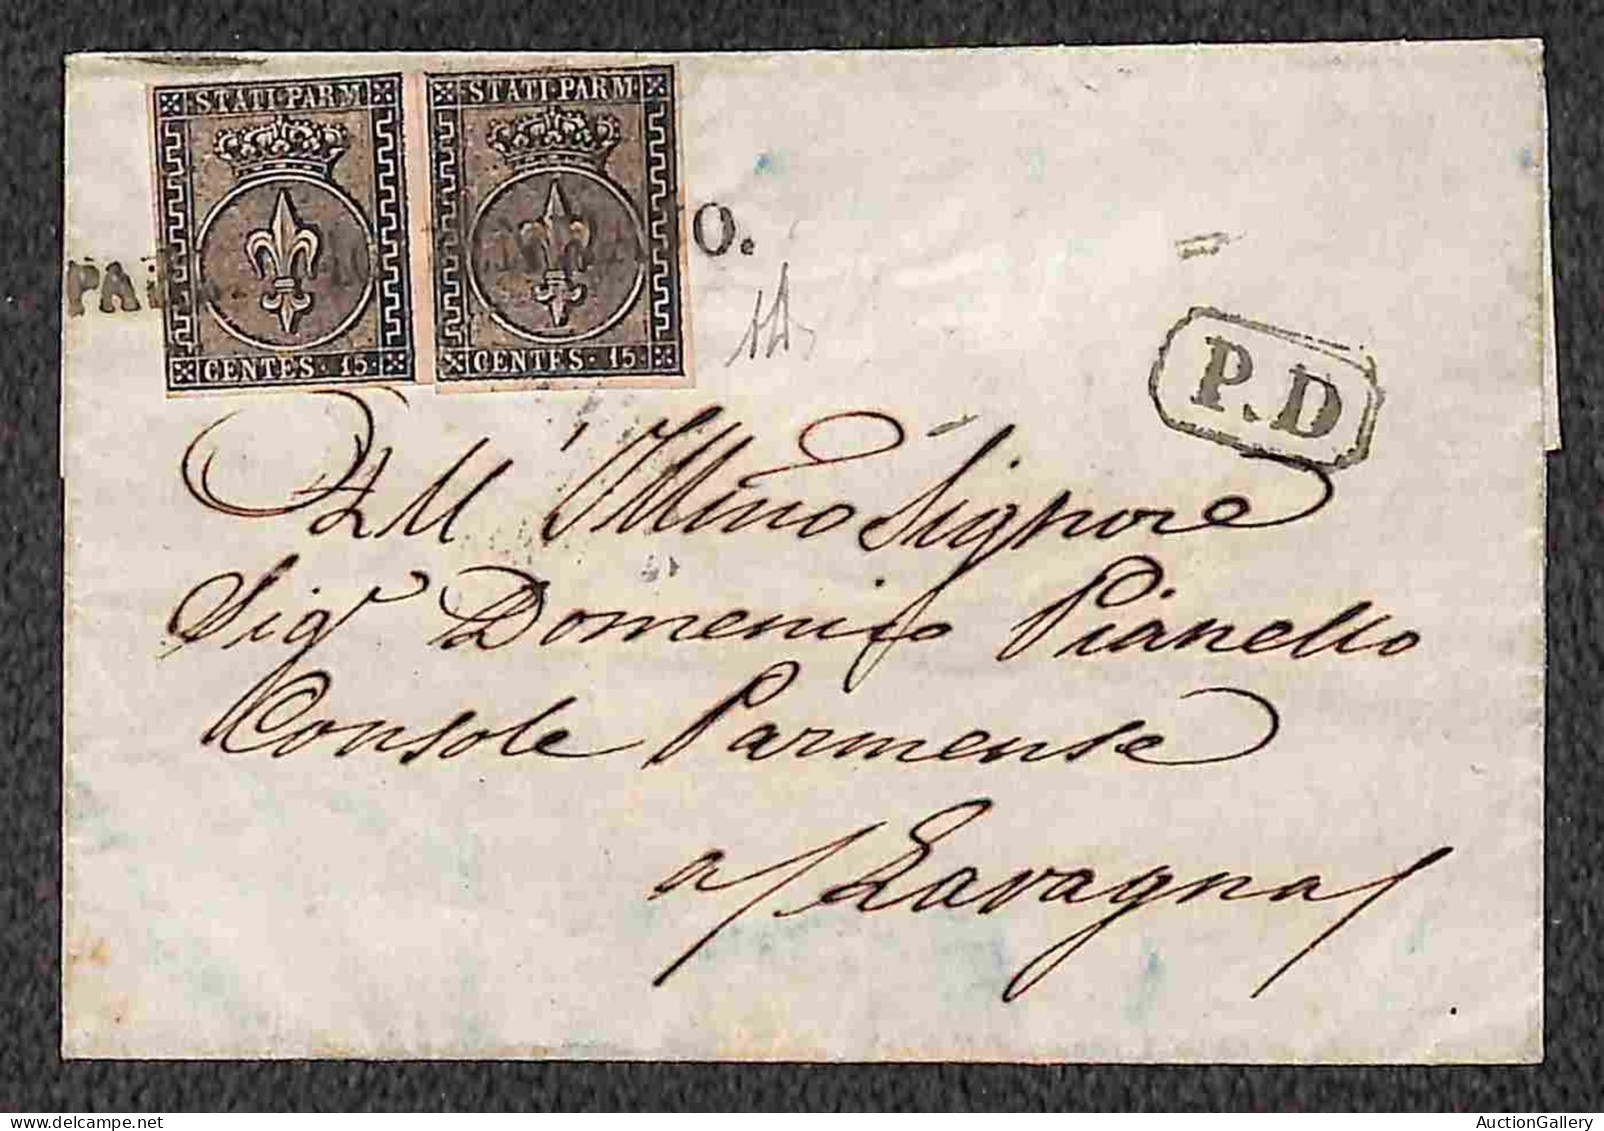 STATI·PARM
STATI·PARM·
CENTES·15·
CENTES·15·
O.
P.D
All'Illmo Signore
Sigr Domenico Pianello
Console Parmense
a/ Lavagna/
AuctionGallery